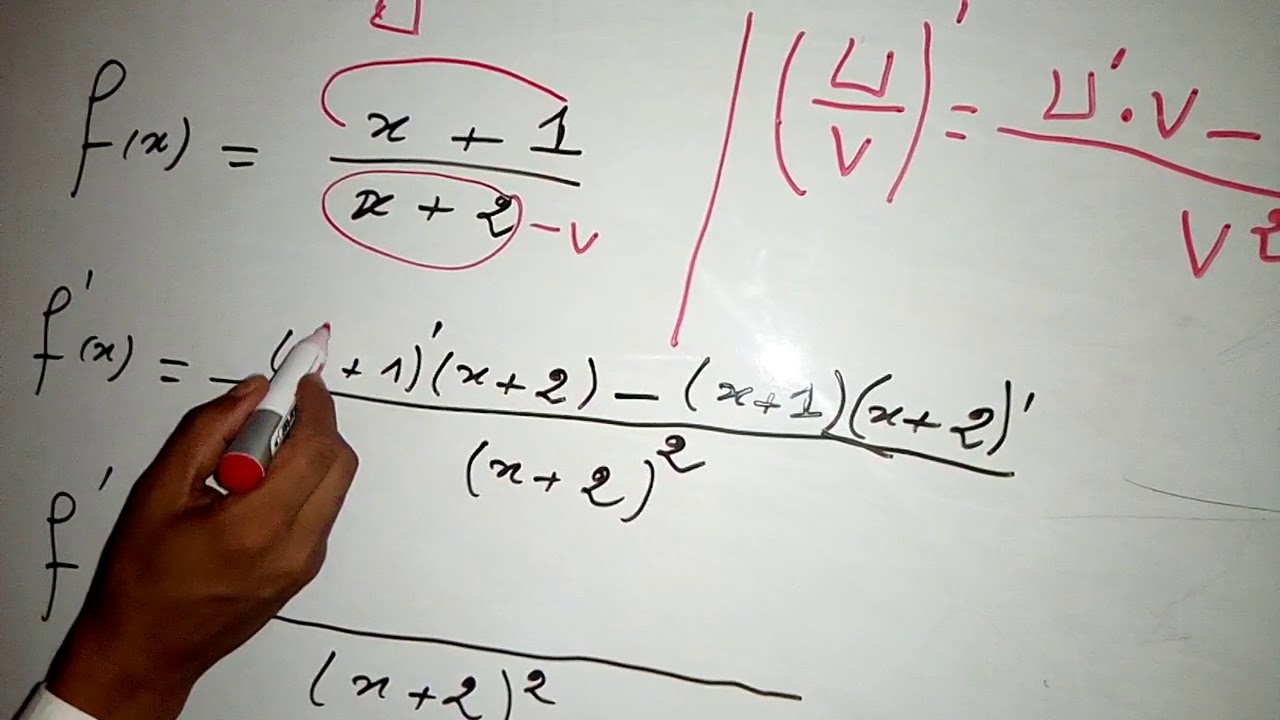 U
f(x) = (x + 1)/(x + 2) - V
(U/V)' = (U'.V -)/V²
f'(x) = ( + 1)'(x + 2) - (x + 1)(x + 2)' / (x + 2)²
f'
(x + 2)²